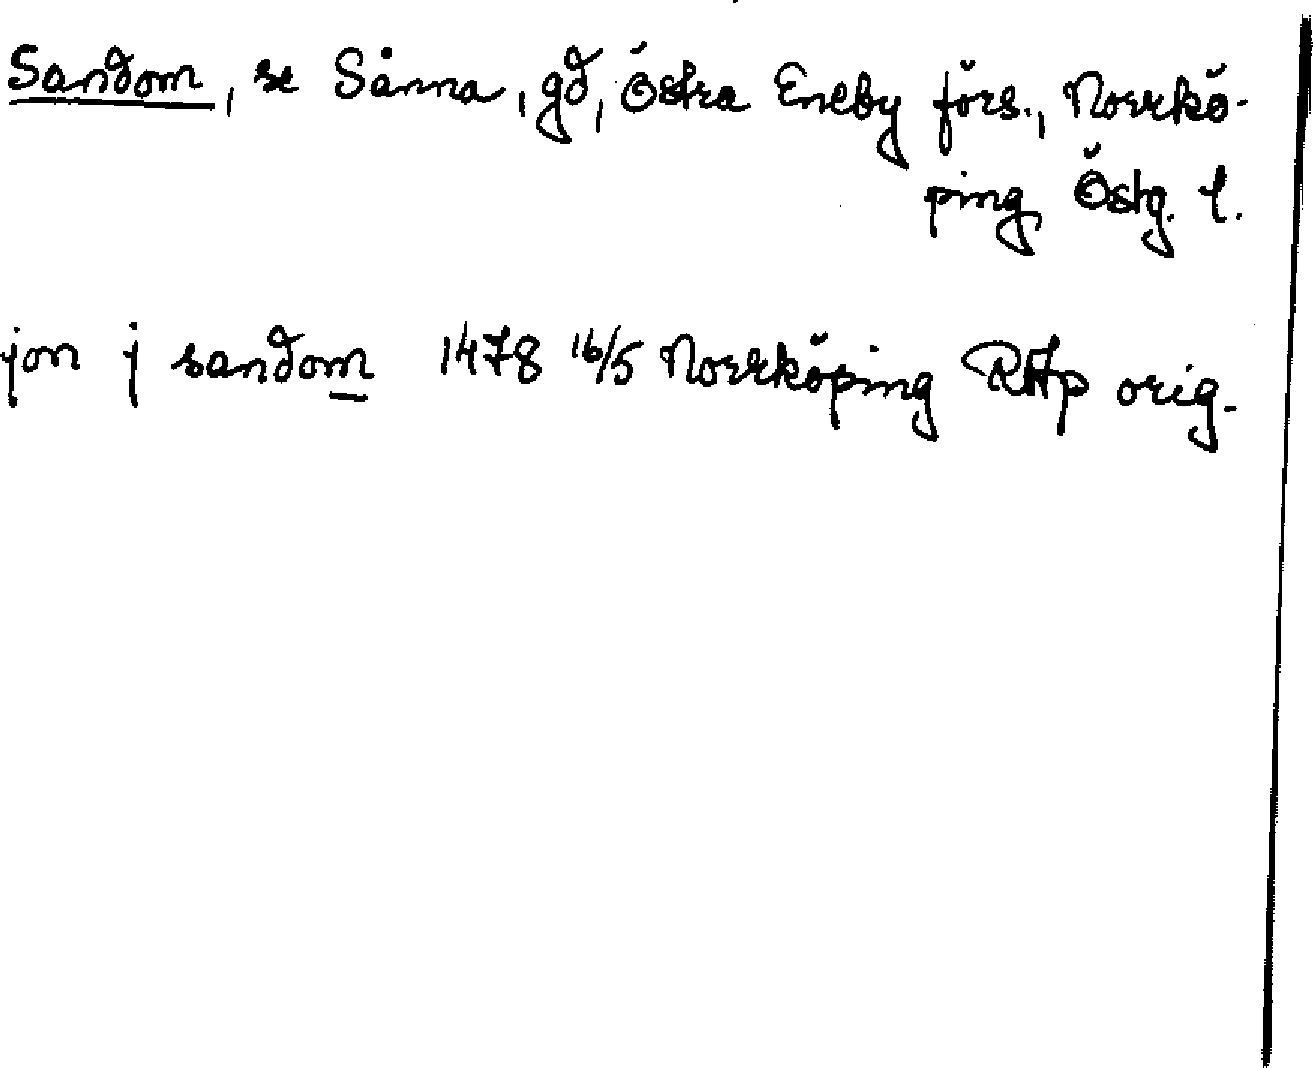 Sandom, se Sånna, gd, Östra Eneby förs., Norrkö-
ping Östg. l.
jon j sandom 1478 16/5 Norrköping RAp orig.